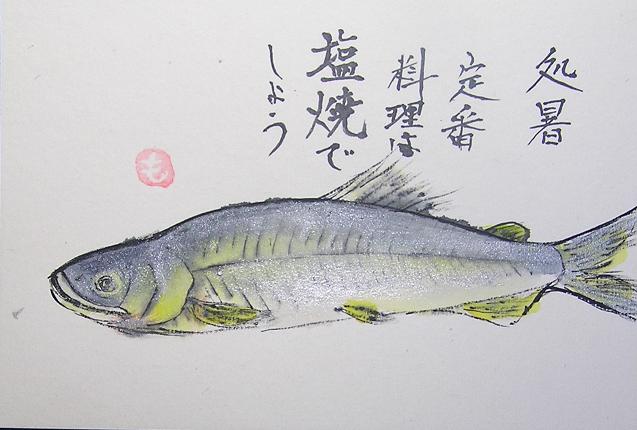 処暑
定番
料理は
塩焼で
しょう
も